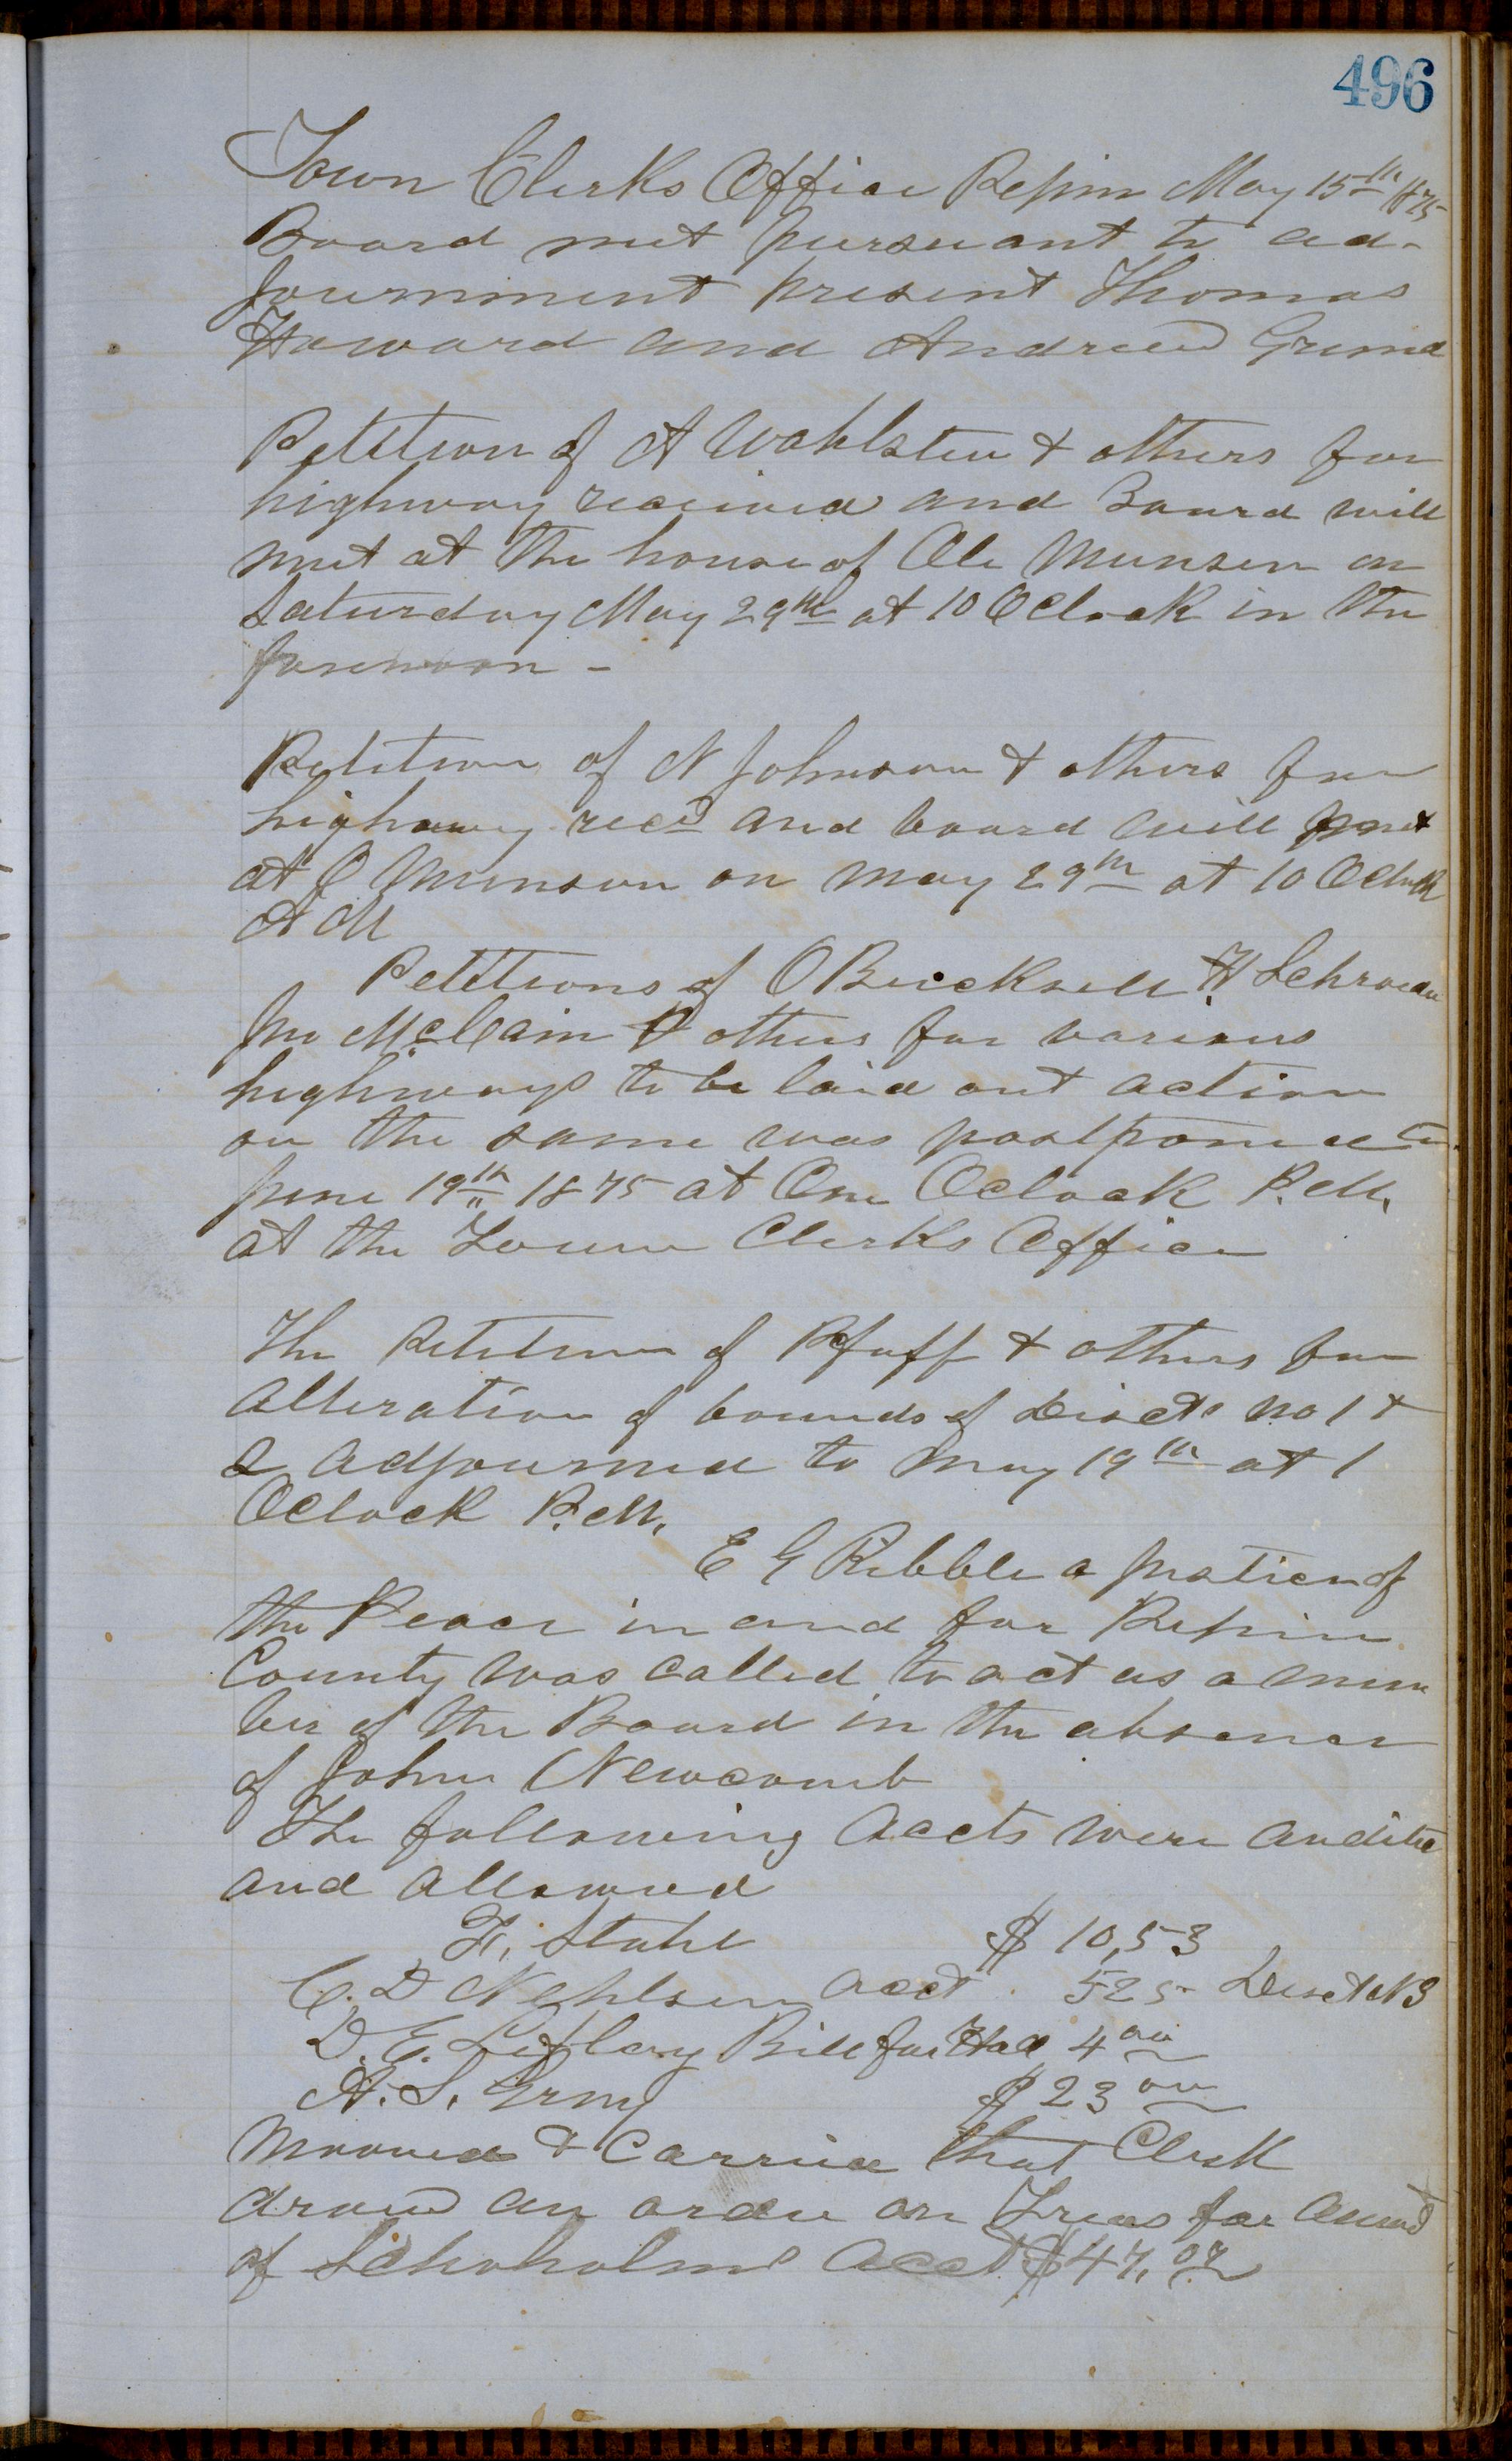 496
Town Clerks Office Pepin May 15th 1875
Board met pursuant to ad-
journment present Thomas
Howard and Andrew
Petition of A Wahlsten & others for
highway received and Board will
met at the house of Ole Munson on
Saturday May 29th at 10 OClock in the
forenoon -
Petition of N Johnson & others for
highway recd and board will met
at O Munson on May 29th at 10 OClock
A M
Petitions of O H Schroeder
Jno McCain & others for various
highways to be laid out action
on the same was postponed to
June 19th 1875 at One Oclock P.M.
at the Town Clerks Office
The Petition of Pfaff & others for
alteration of bounds of Disct no 1 &
2 adjourned to May 19th at 1
OClock P.M.
E G Ribble a Justice of
the Peace in and for Pepin
County was called to act as a mem
ber of the Board in the absence
of John Newcomb
The following Accts were audited
and allowed
F. Stahl $ 10,53
C. D Nehlsen acct 525 Disct N 3
D. E. Bill for Hall 4 00
A. S. Gray $ 23 00
Mooved & Carried that Clerk
draw an order on Treas for Amnt
of Schoholm Acct $ 47.07